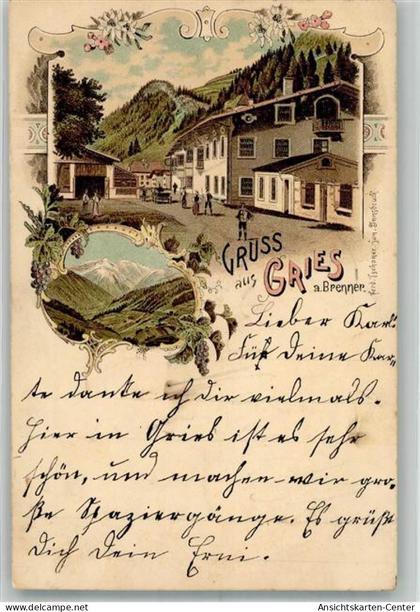 GRUSS
aus GRIES
a. Brenner.
Lieber Karl
Für Deine Kar-
te danke ich dir vielmals.
Hier in Gries ist es sehr
schön, und machen wir gro-
ße Spaziergänge. Es grüßt
Dich Dein Erni.
Ansichtskarten-Center